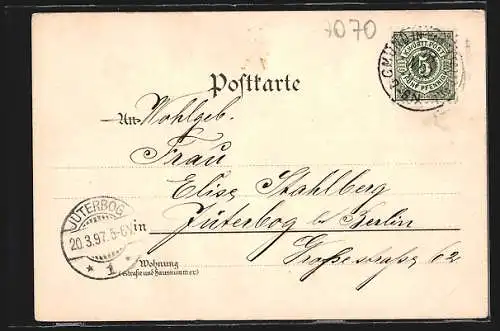 7070
5
FÜNF PFENNIG
Postkarte
An Wohlgeb.
Frau
Elise Stahlberg
in Jüterbog bei Berlin
Großestraße 62
Wohnung
(Straße und Hausnummer)
JÜTERBOG
20.3.97. 5-6N
* 1 *